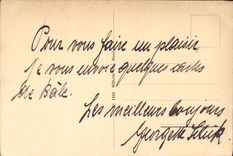 Pour vous faire un plaisir,
je vous envoie quelques cartes
de Bâle.
Les meilleurs bonjours
Georgette